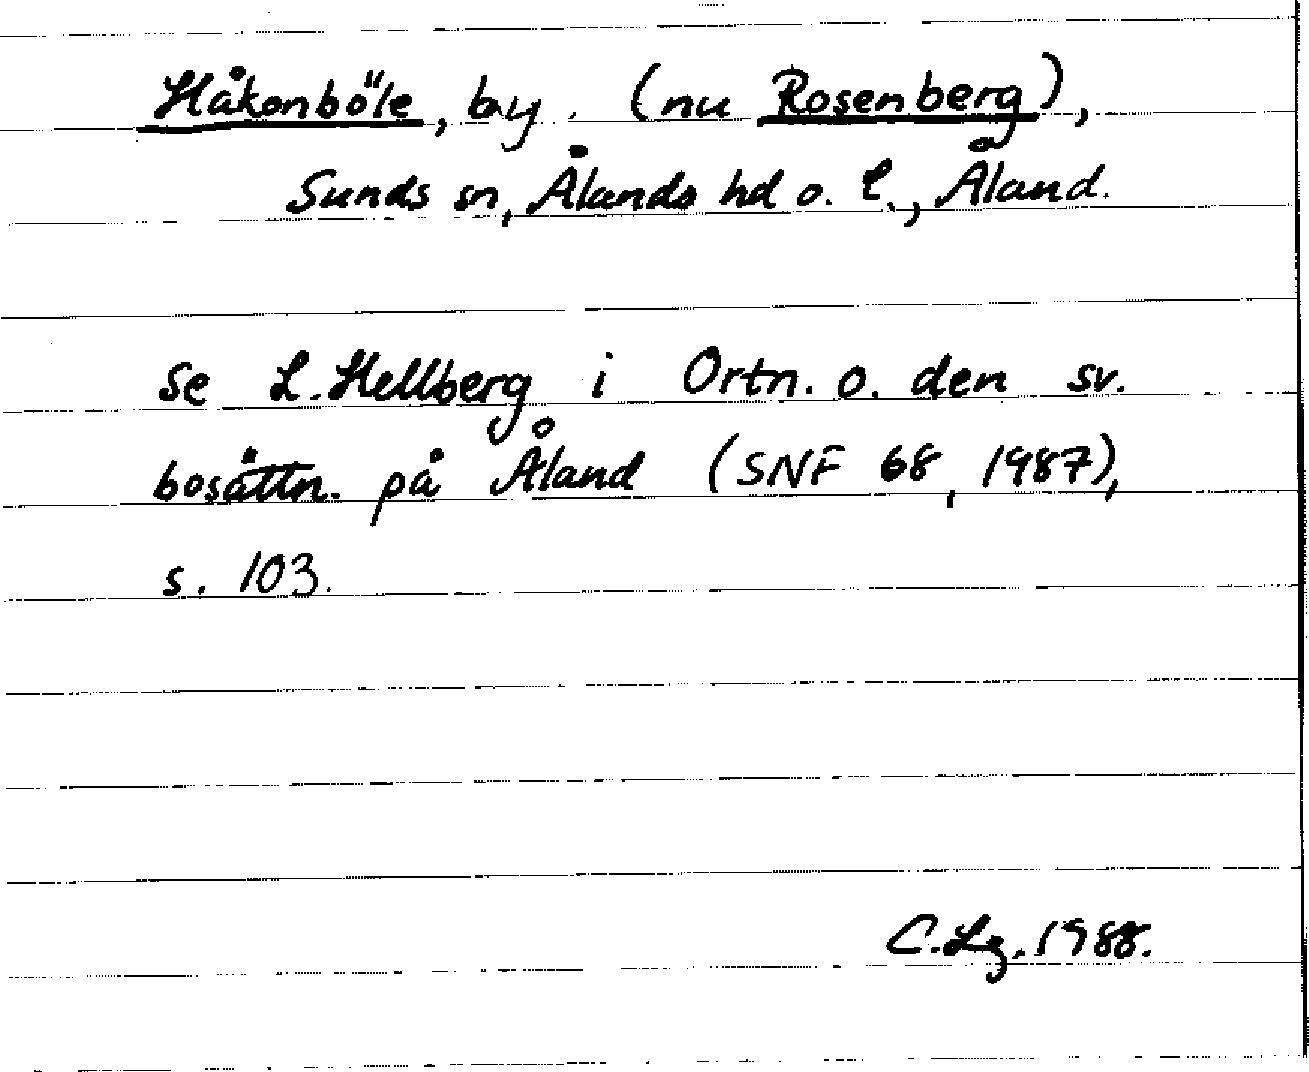 Håkonböle, by. (nu Rosenberg),
Sunds sn, Ålands hd o. l., Åland.
se L. Hellberg i Ortn. o. den sv.
bosättn. på Åland (SNF 68, 1987),
s. 103.
C.Lg. 1988.